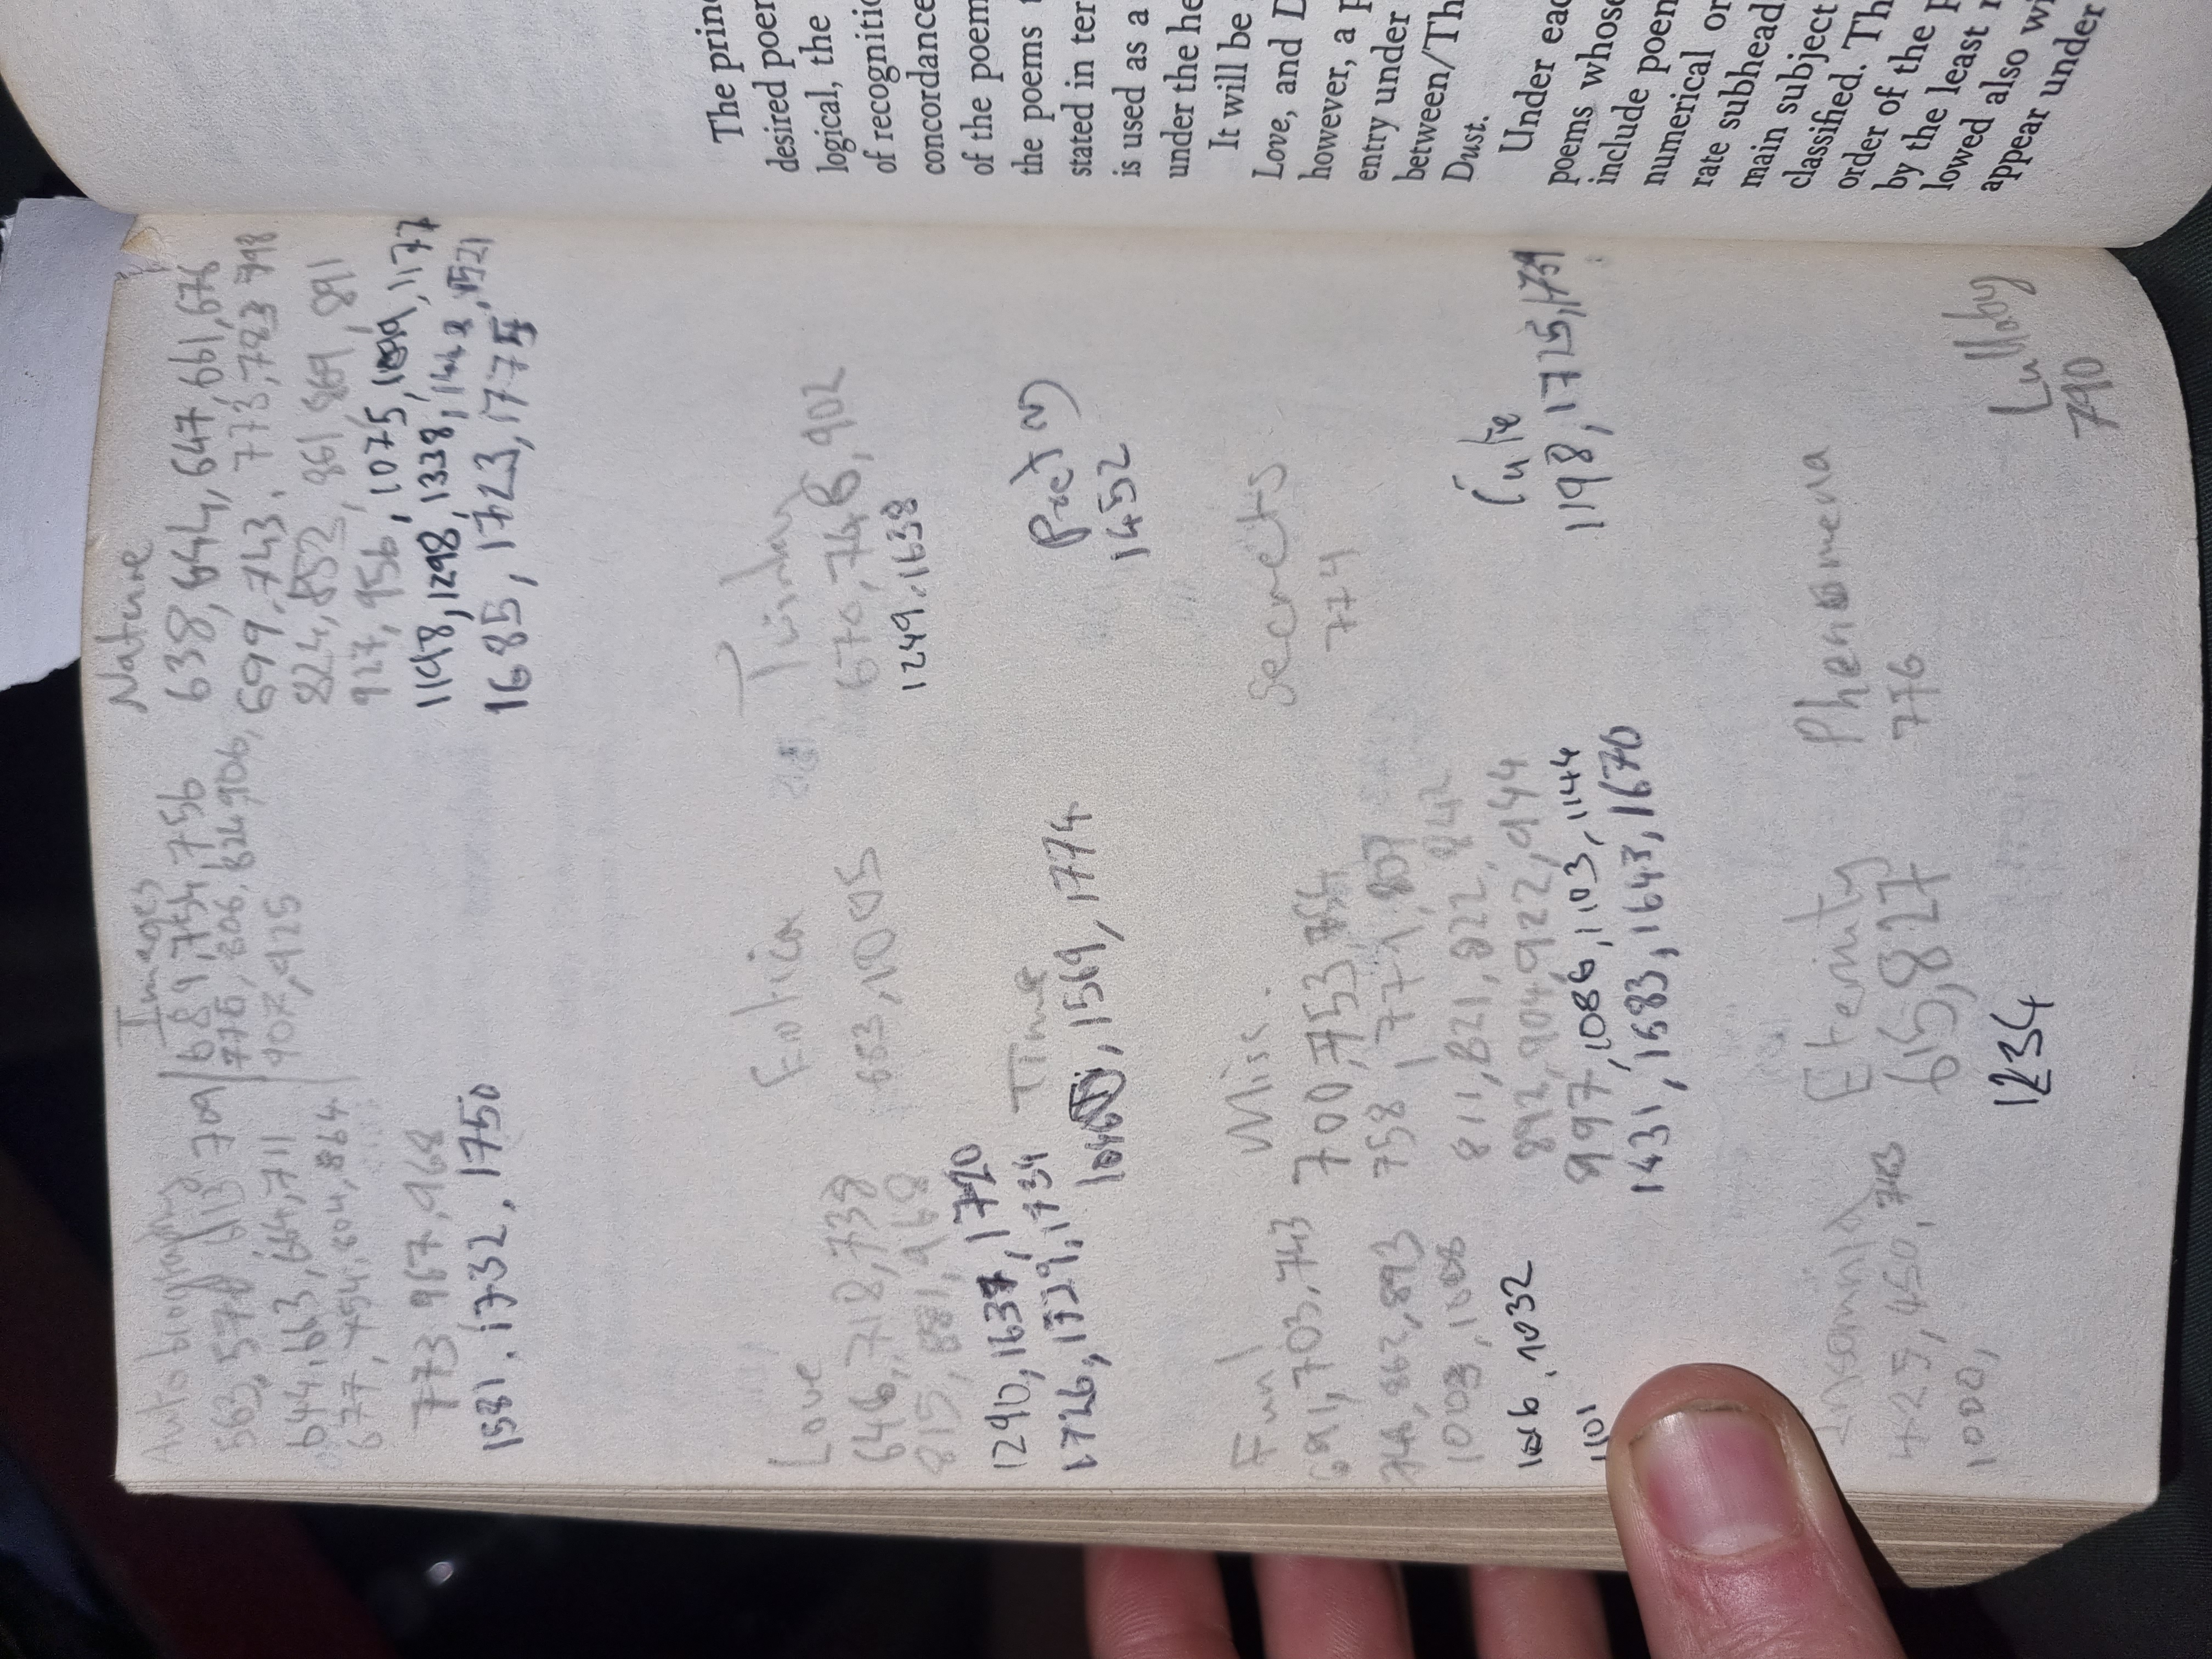 Autobiography
563, 570, 613 709
644, 663, 664, 711
677, 754, 804, 864
773, 967, 968
1581, 1732, 1750
Images
689, 754, 756
775, 806, 824, 906,
907, 925
Nature
638, 644, 647, 661, 676
699, 743, 773, 783 798
824, 852, 861, 869, 891
927, 956, 1075, 1099, 1177
1198, 1298, 1338, 1521
1685, 1723, 1775
Love
646, 718, 738
815, 881, 968
1290, 1637, 1720
1726, 1729, 1734
Erotica
663, 1005
670, 746, 902
1249, 1638
Time
1569, 1774
Pretty
1452
Fun!
691, 703, 743
746, 862, 893
1003, 1008
1032
1101
Misc.
700, 753, 754
758, 771, 807
811, 821, 822, 842
892, 904, 922, 944
997, 1086, 1103, 1144
1431, 1583, 1643, 1670
Secrets
774
Cute
1198, 1725, 1739
Insomnia
425, 450, 743
1000,
Eternity
615, 827
1234
Phenomena
776
Lullaby
790
The prin
desired poe
logical, the
of recogniti
concordance
of the poem
the poems
stated in ter
is used as a
under the he
It will be
Love, and D
however, a p
entry under
between/Th
Dust.
Under eac
poems whose
include poem
numerical or
rate subhead
main subject
classified. Th
order of the p
by the least
lowed also wi
appear under